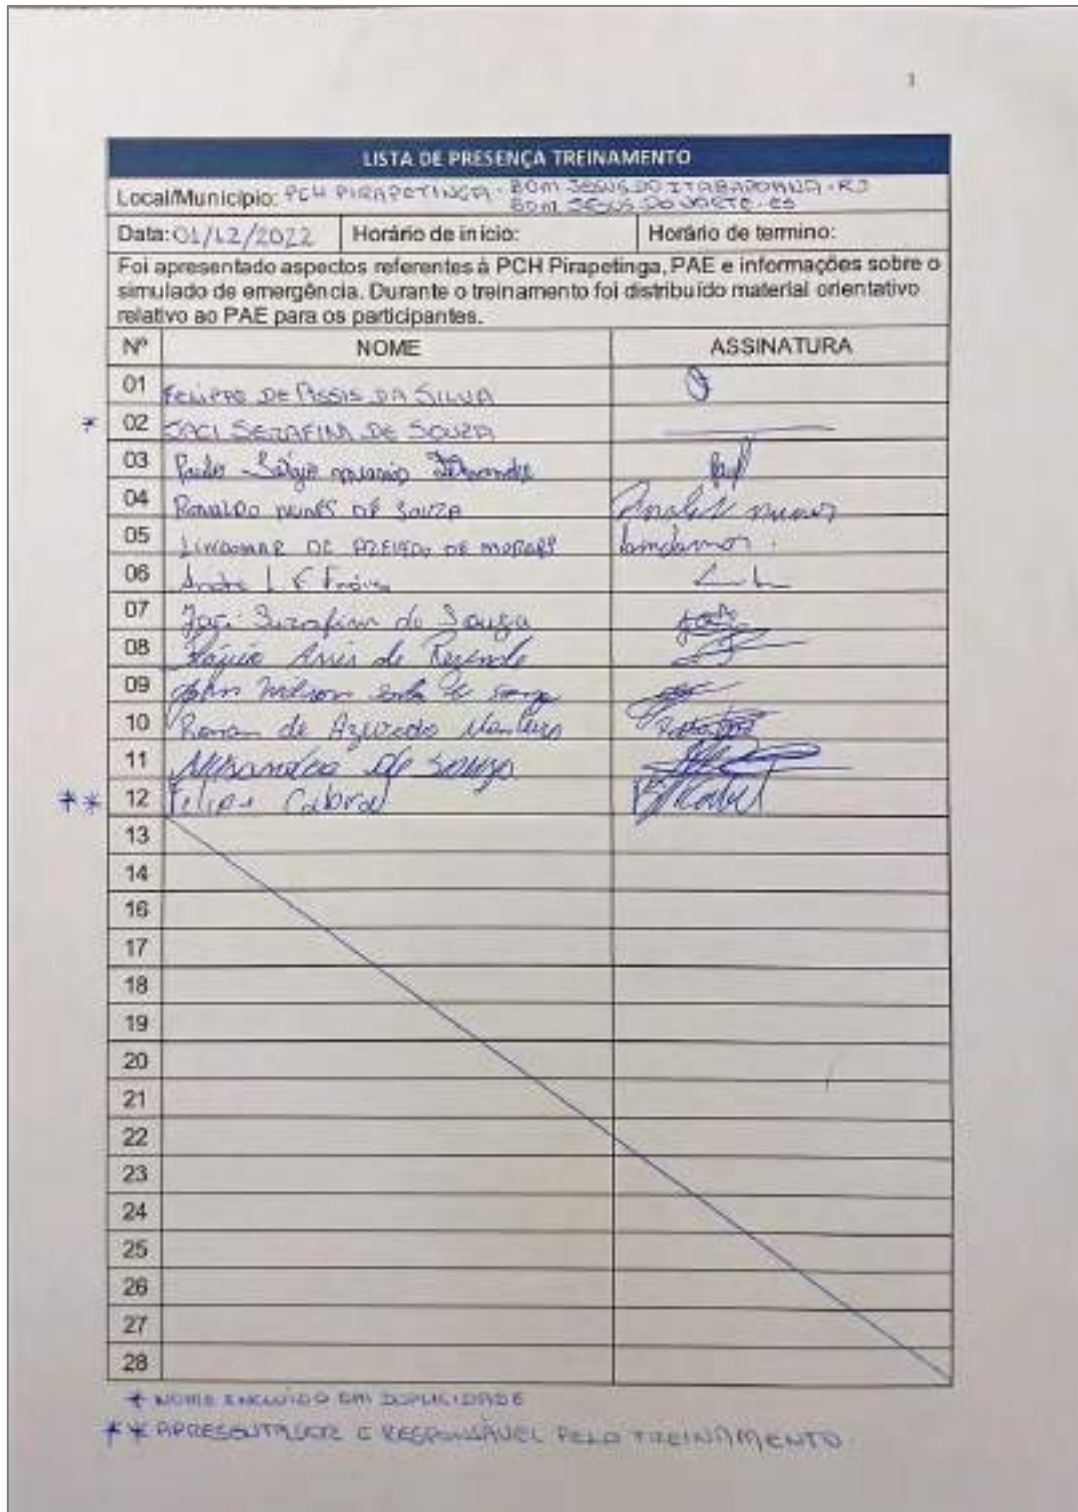 1
LISTA DE PRESENÇA TREINAMENTO
Local/Município: PCH PIRAPETINGA - BOM JESUS DO ITABAPOANA - RJ
BOM JESUS DO NORTE - ES
Data: 01/12/2022 Horário de início: Horário de termino:
Foi apresentado aspectos referentes à PCH Pirapetinga, PAE e informações sobre o
simulado de emergência. Durante o treinamento foi distribuído material orientativo
relativo ao PAE para os participantes.
Nº NOME ASSINATURA
01 FELIPPE DE ASSIS DA SILVA
* 02 JACI SERAFIM DE SOUZA
03 Paulo Sérgio
04 RONALDO NUNES DE SOUZA Nunes
05 LINDOMAR DE AZEVEDO DE MORAES
06 André L F
07 Jaci Serafim de Souza
08 Assis de Rezende
09 John
10 Renan de Azevedo
11 de Souza
** 12 Felipe Cabral
13
14
16
17
18
19
20
21
22
23
24
25
26
27
28
* NOME INCLUÍDO EM DUPLICIDADE
** APRESENTADOR E RESPONSÁVEL PELO TREINAMENTO.